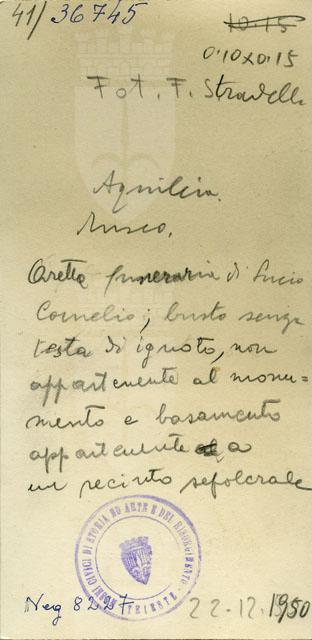 41/36745
10.15
0.10x0.15
Fot. F. Stravelli
Aquileia.
Museo.
Aretta funeraria di Lucio
Cornelio; busto senza
testa di ignoto, non
appartenente al monu=
mento e basamento
appartenente a
un recinto sepolcrale
MUSEI CIVICI DI STORIA ED ARTE E DEL RISORGIMENTO
TRIESTE
Neg 8227
22-12-1950